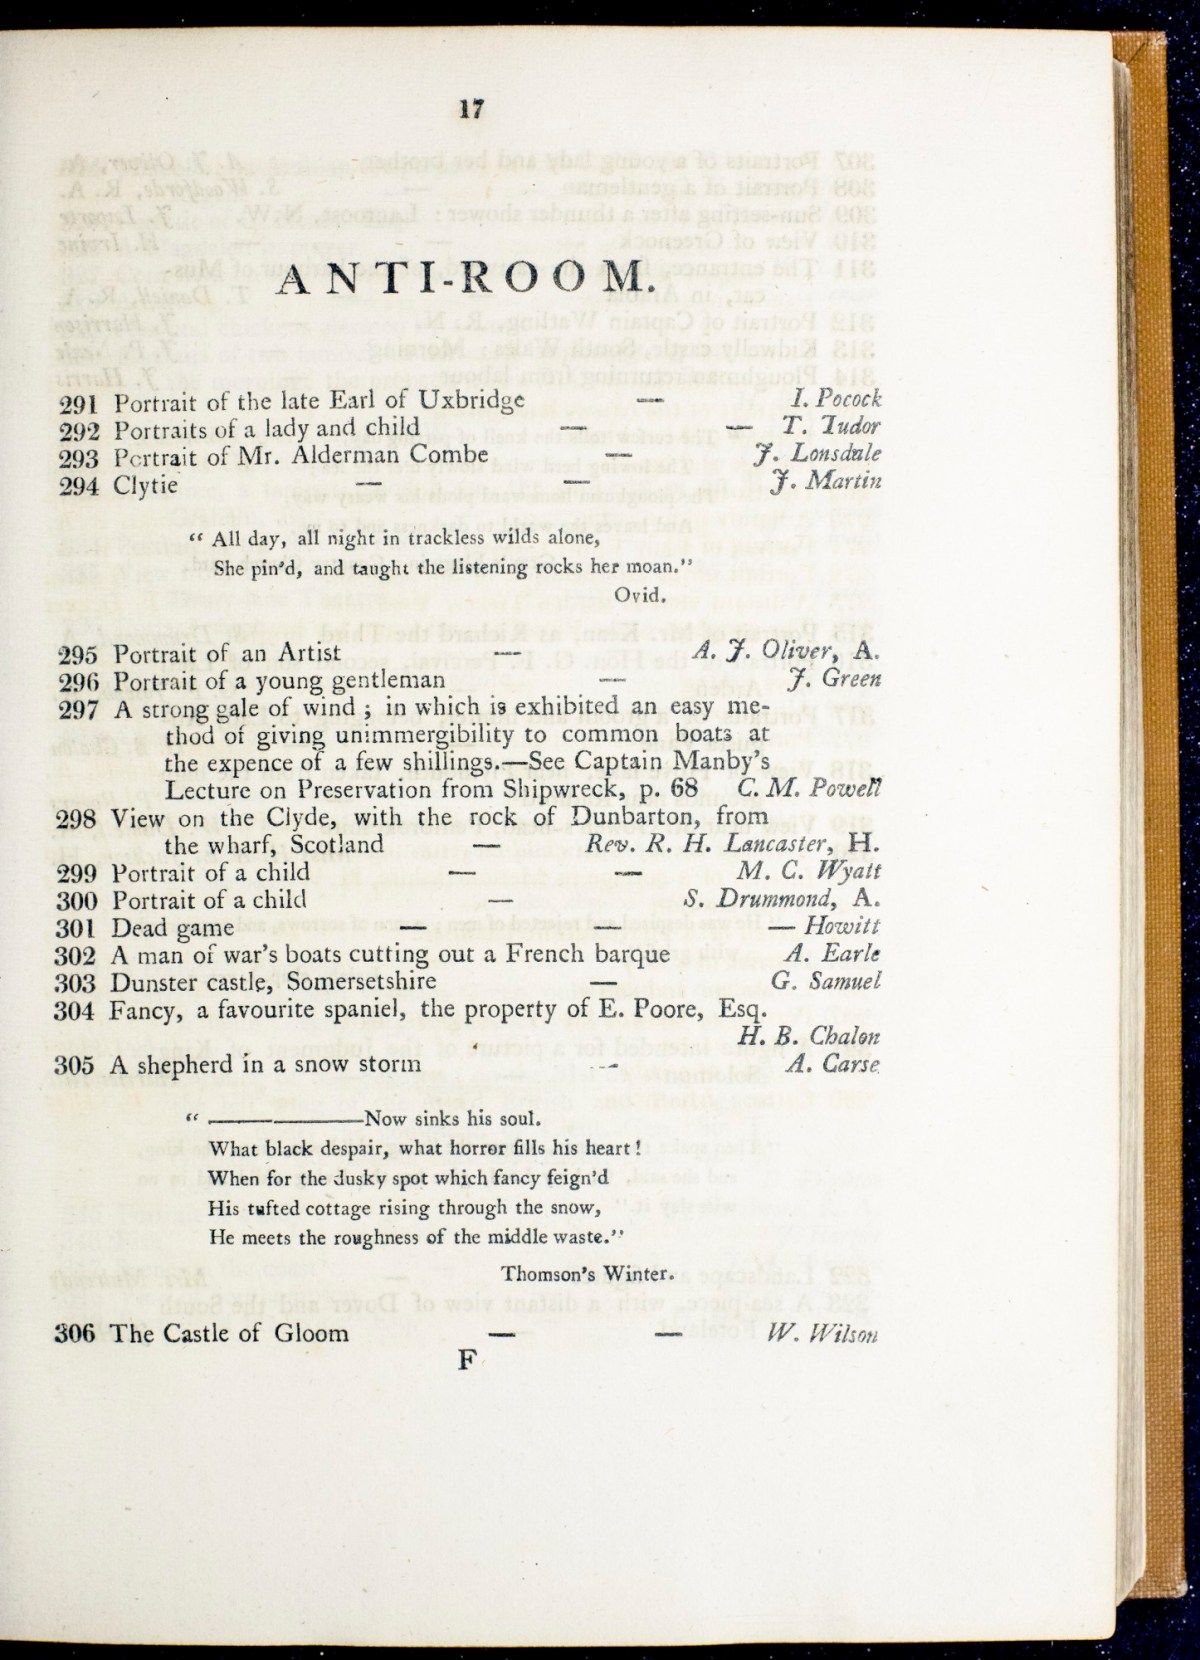 17
ANTI-ROOM.
291 Portrait of the late Earl of Uxbridge — I. Pocock
292 Portraits of a lady and child — — T. Tudor
293 Portrait of Mr. Alderman Combe — J. Lonsdale
294 Clytie — — J. Martin
“ All day, all night in trackless wilds alone,
She pin'd, and taught the listening rocks her moan.”
Ovid.
295 Portrait of an Artist — A. J. Oliver, A.
296 Portrait of a young gentleman — J. Green
297 A strong gale of wind ; in which is exhibited an easy me-
thod of giving unimmergibility to common boats at
the expence of a few shillings.—See Captain Manby's
Lecture on Preservation from Shipwreck, p. 68 C. M. Powell
298 View on the Clyde, with the rock of Dunbarton, from
the wharf, Scotland — Rev. R. H. Lancaster, H.
299 Portrait of a child — — M. C. Wyatt
300 Portrait of a child — S. Drummond, A.
301 Dead game — — — Howitt
302 A man of war's boats cutting out a French barque A. Earle
303 Dunster castle, Somersetshire — G. Samuel
304 Fancy, a favourite spaniel, the property of E. Poore, Esq.
H. B. Chalon
305 A shepherd in a snow storm — A. Carse
“ ——————Now sinks his soul.
What black despair, what horror fills his heart !
When for the dusky spot which fancy feign'd
His tufted cottage rising through the snow,
He meets the roughness of the middle waste.”
Thomson's Winter.
306 The Castle of Gloom — — W. Wilson
F